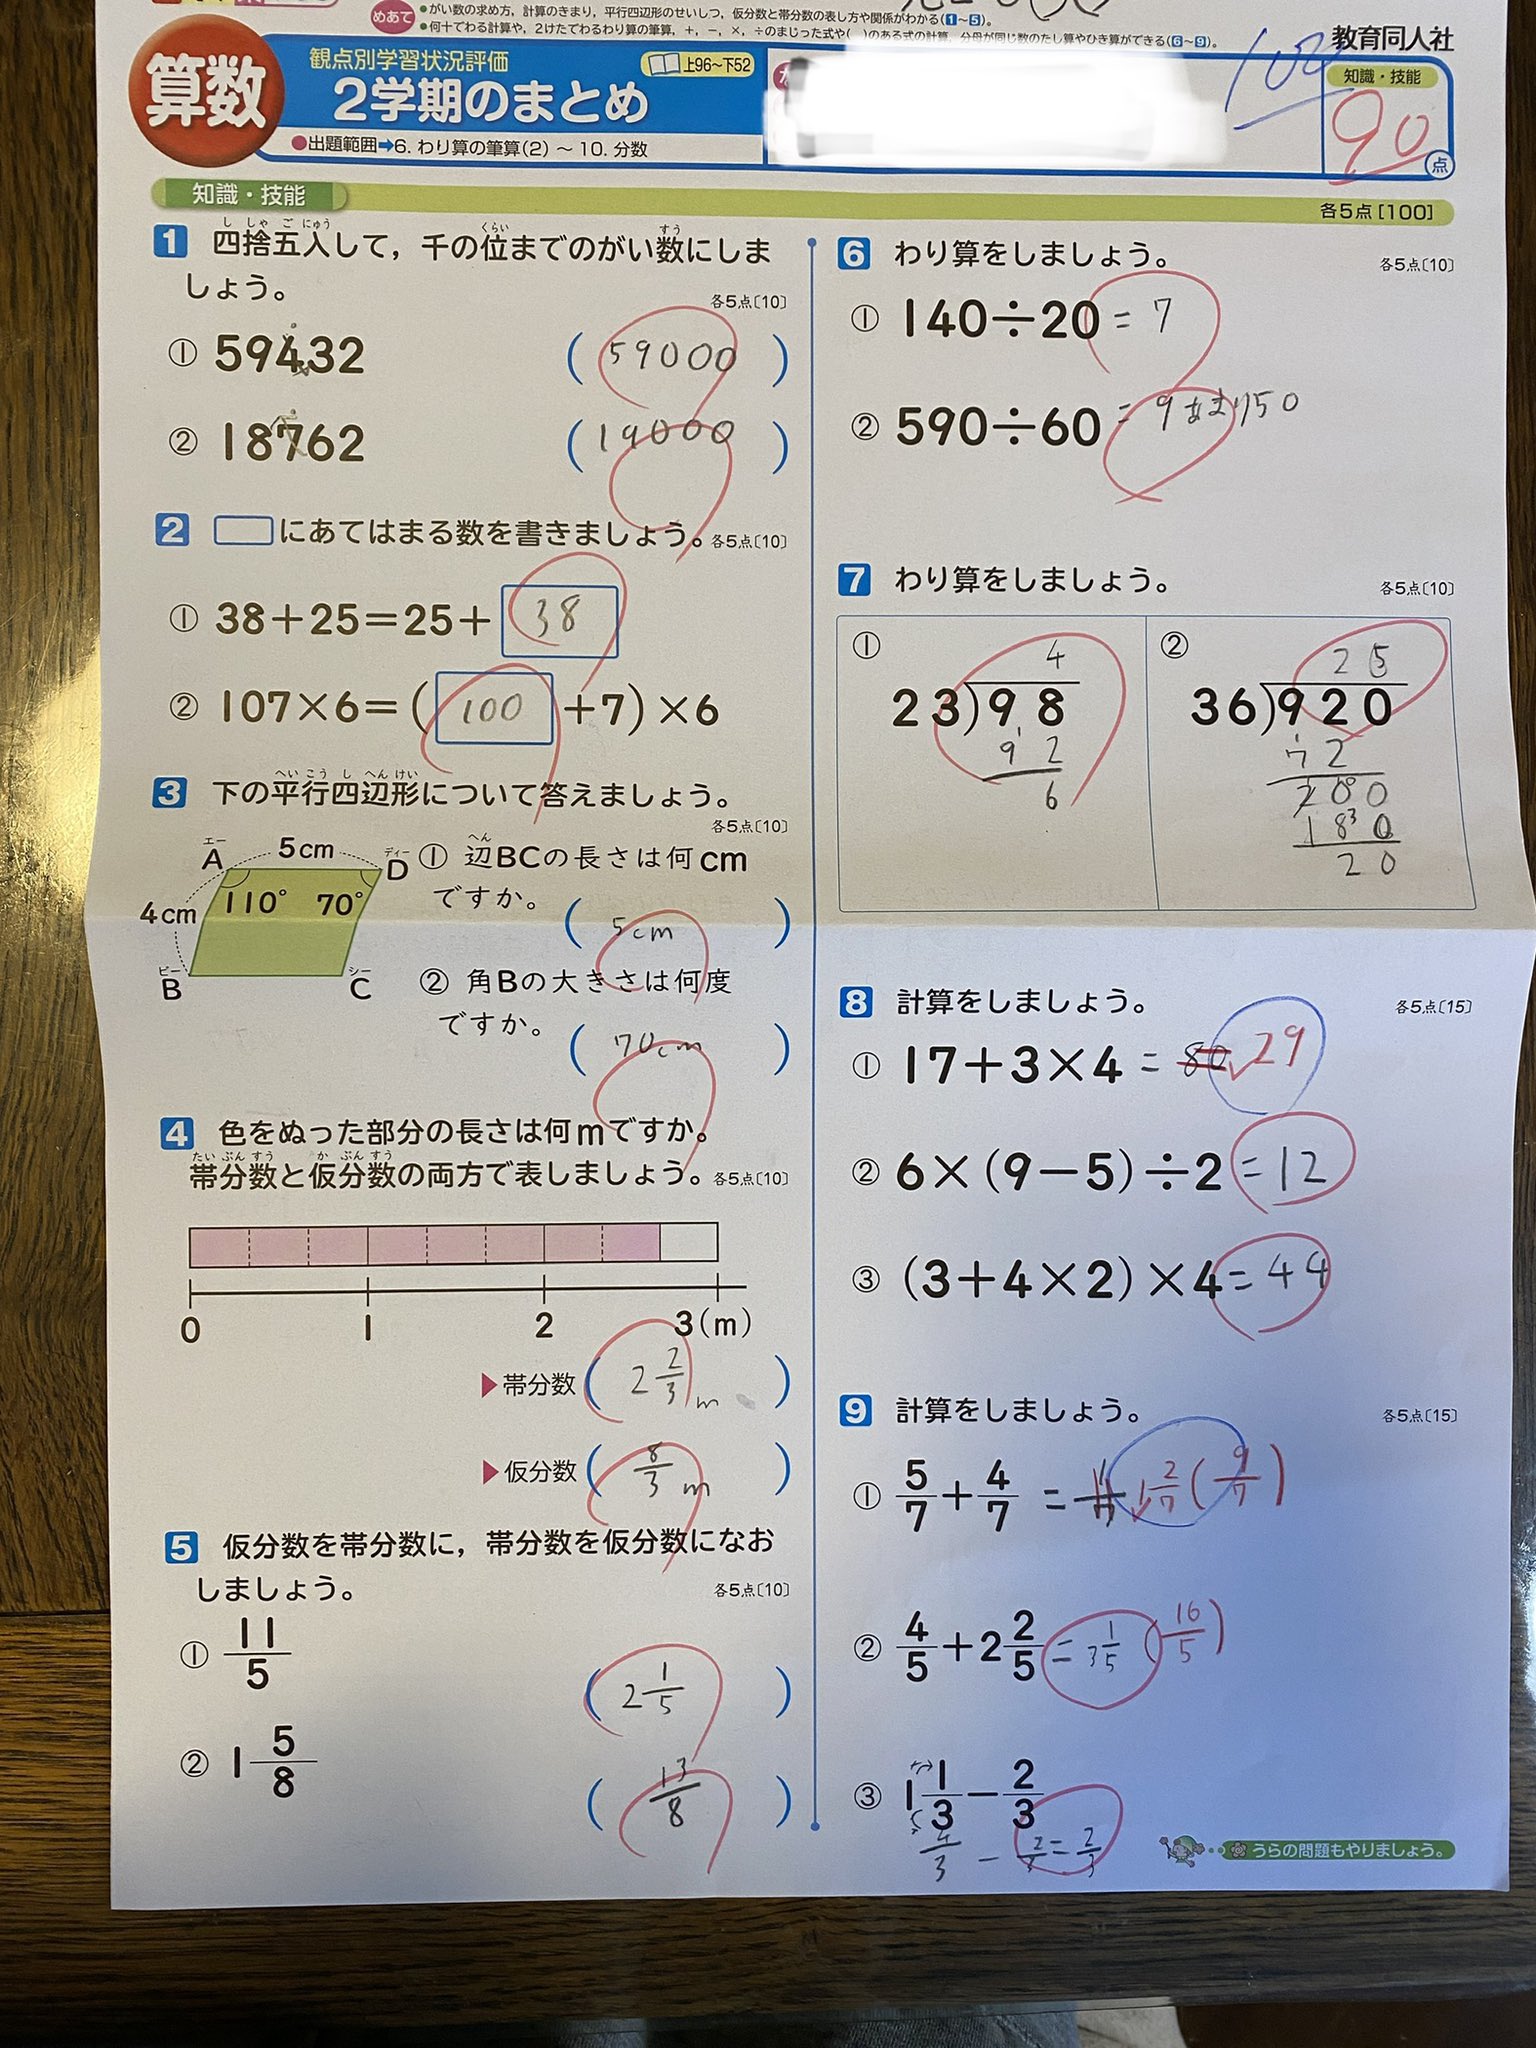 めあて
●がい数の求め方，計算のきまり，平行四辺形のせいしつ，仮分数と帯分数の表し方や関係がわかる(1～5)。
●何十でわる計算や，2けたでわるわり算の筆算，+，−，×，÷のまじった式や( )のある式の計算，分母が同じ数のたし算やひき算ができる(6～9)。
算数
観点別学習状況評価
上96～下52
2学期のまとめ
●出題範囲➡6. わり算の筆算(2) ～ 10. 分数
100
教育同人社
知識・技能
90
点
知識・技能
各5点[100]
1 四捨五入して，千の位までのがい数にしま
しょう。
各5点〔10〕
① 59432 ( 59000 )
② 18762 ( 19000 )
2 □にあてはまる数を書きましょう。各5点〔10〕
① 38+25=25+ 38
② 107×6=( 100 +7)×6
3 下の平行四辺形について答えましょう。
各5点〔10〕
A 5cm D
110° 70°
4cm
B C
① 辺BCの長さは何cm
ですか。
( 5cm )
② 角Bの大きさは何度
ですか。
( 70cm )
4 色をぬった部分の長さは何mですか。
帯分数と仮分数の両方で表しましょう。各5点〔10〕
0 1 2 3(m)
▶帯分数( 2 2/3 m )
▶仮分数( 8/3 m )
5 仮分数を帯分数に，帯分数を仮分数になお
しましょう。
各5点〔10〕
① 11/5 ( 2 1/5 )
② 1 5/8 ( 13/8 )
6 わり算をしましょう。
各5点〔10〕
① 140÷20 = 7
② 590÷60 = 9あまり50
7 わり算をしましょう。
各5点〔10〕
①
4
23)98
92
6
②
25
36)920
72
200
180
20
8 計算をしましょう。
各5点〔15〕
① 17+3×4 = 80 29
② 6×(9−5)÷2 =12
③ (3+4×2)×4 =44
9 計算をしましょう。
各5点〔15〕
① 5/7+4/7 = 1 2/7 (9/7)
② 4/5+2 2/5 = 3 1/5 (16/5)
③ 1 1/3−2/3
4/3 − 2/3 = 2/3
うらの問題もやりましょう。